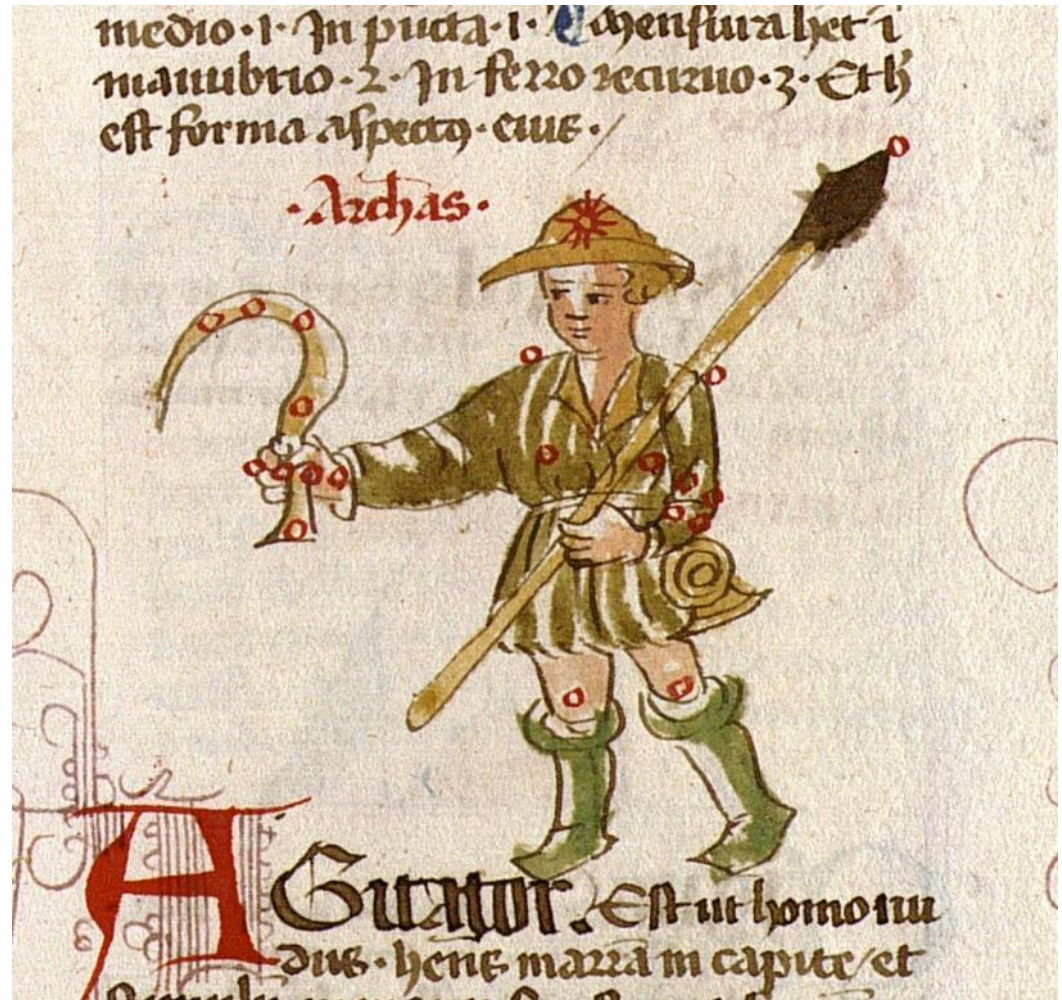 medio · 1 · In pūcta · 1 · Mensura hēt ī
manubrio · 2 · In ferro recuruo · 3 · Et h̄
est forma aspectꝯ · eius ·/
· Archas ·
AGitator. Est ut homo nu
dus · hēns mazzā in capite / et